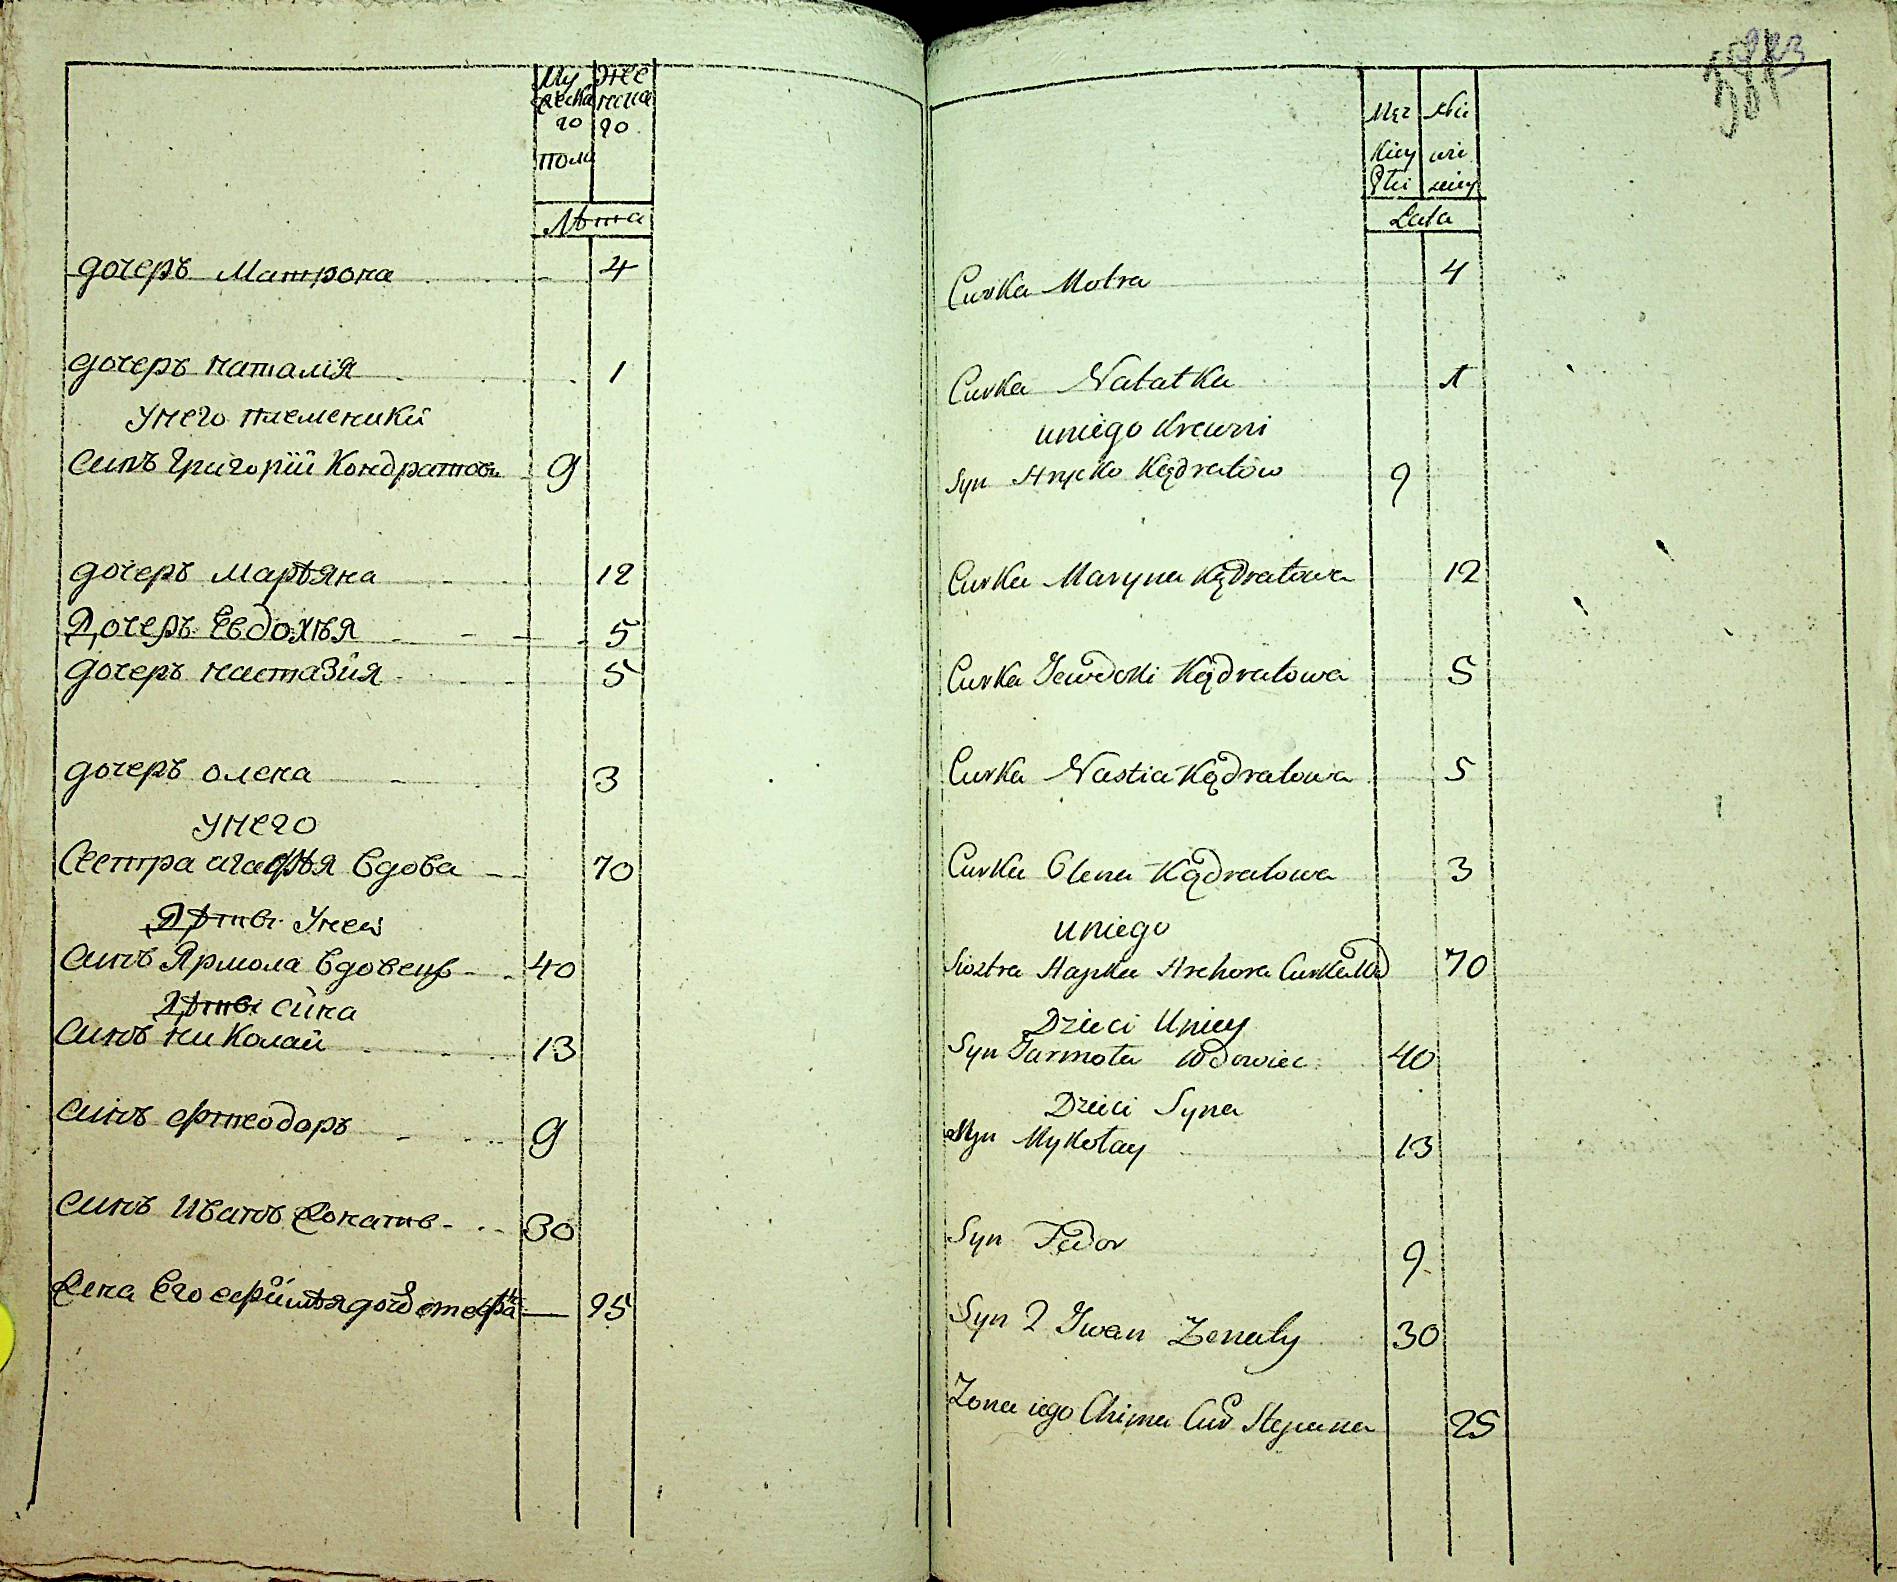 Му Жее
жеска неска
го го
пола
Лѣта
дочеръ Матрона 4
дочеръ наталія 1
Унего племеники
синъ Григорій Кондратовъ 9
дочеръ Марѣяна 12
Дочеръ Евдохѣя 5
дочеръ настазия 5
дочеръ олена 3
Унего
Сестра агафѣя вдова 70
Дѣтвѣ Унеи
синъ Ярмола вдовецъ 40
Дѣтвѣ сина
синъ николай 13
синъ фтеодоръ 9
синъ Иванъ 30
Жена Его 25
Męz Nie
kiey wie
Płci sciey
Lata
Curka Motra 4
Curka Natałka 1
uniego Krewni
Syn Hrycko Kądratow 9
Curka Maryna Kądratowa 12
Curka Jewdoki Kądratowa 5
Curka Nastia Kądratowa 5
Curka Olena Kądratowa 3
uniego
Siostra Hapka Hrehora Curka Wd 70
Dzieci Uniey
Syn Jarmoła Wdowiec 40
Dzieci Syna
Syn Mykołay 13
Syn Fedor 9
Syn 2 Jwan Zenaty 30
Zona iego Chima Cur Stepana 25